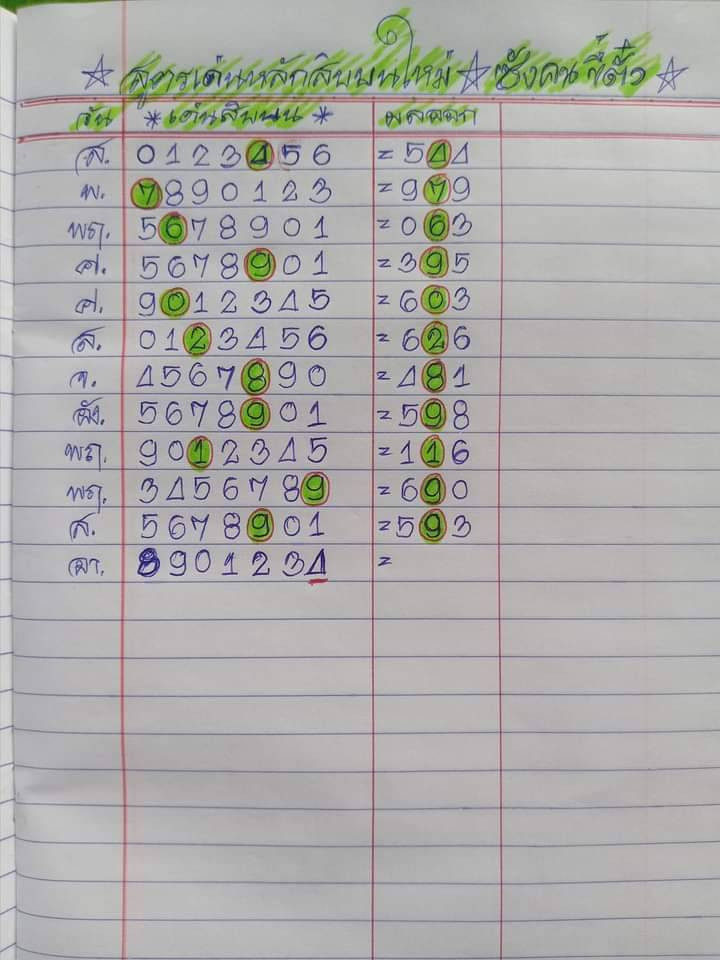 ☆ สูตรเด่นหลักสิบบนใหม่ ☆ ซังคนขี้ตั๋ว ☆
วัน * เด่นสิบบน * ผลออก
ส. 0 1 2 3 4 5 6 = 5 4 4
พ. 7 8 9 0 1 2 3 = 9 7 9
พฤ. 5 6 7 8 9 0 1 = 0 6 3
ศ. 5 6 7 8 9 0 1 = 3 9 5
ศ. 9 0 1 2 3 4 5 = 6 0 3
ส. 0 1 2 3 4 5 6 = 6 2 6
จ. 4 5 6 7 8 9 0 = 4 8 1
อัง. 5 6 7 8 9 0 1 = 5 9 8
พฤ. 9 0 1 2 3 4 5 = 1 1 6
พฤ. 3 4 5 6 7 8 9 = 6 9 0
ส. 5 6 7 8 9 0 1 = 5 9 3
อา. 8 9 0 1 2 3 4 =